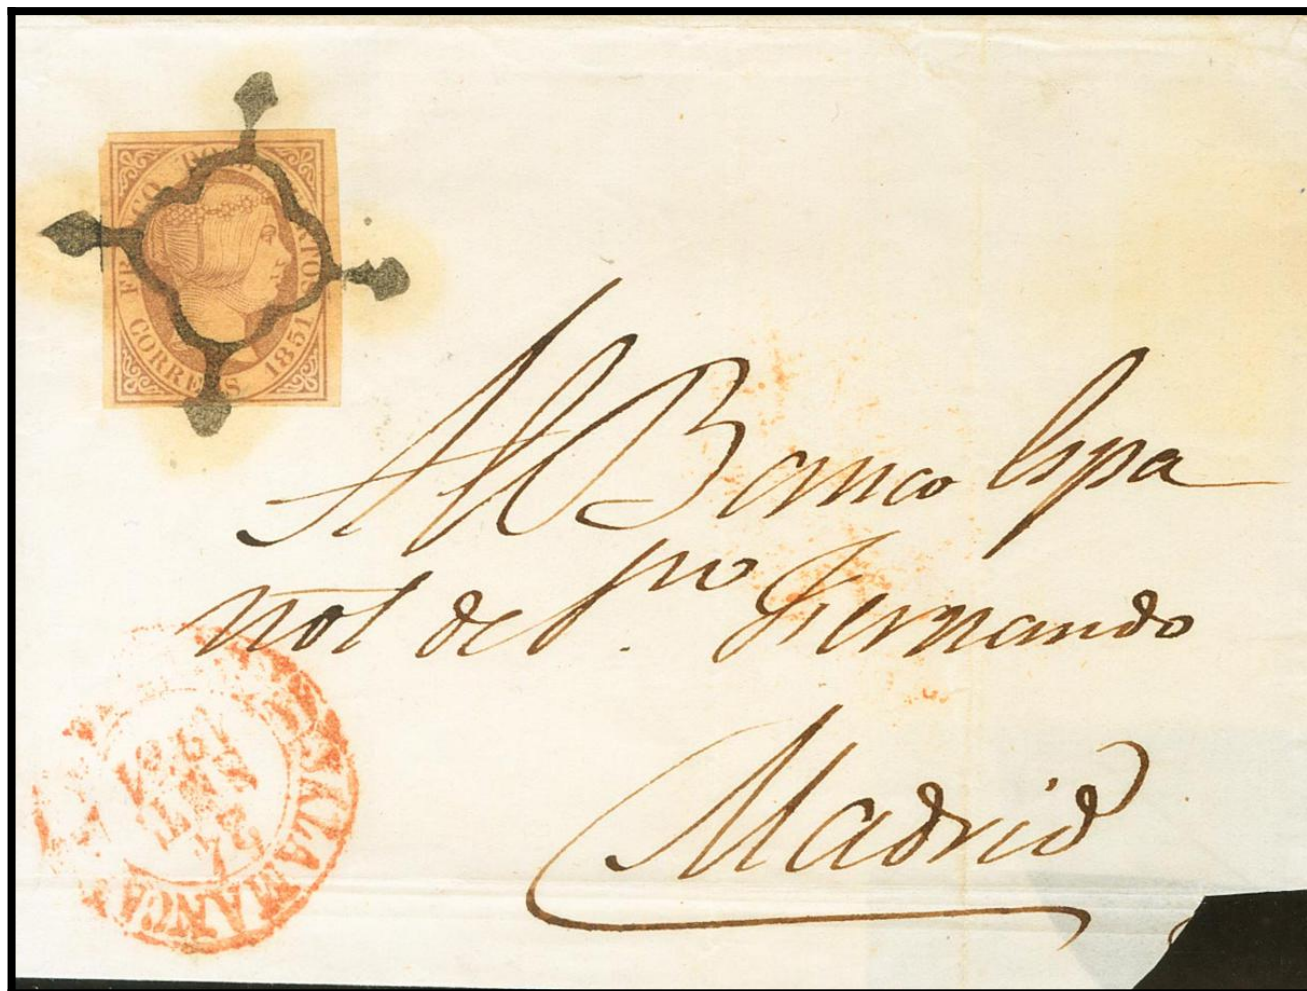 FRANCO DOCE
CORREOS 1851
Al Banco Espa
ñol de Fernando
Madrid
SALAMANCA